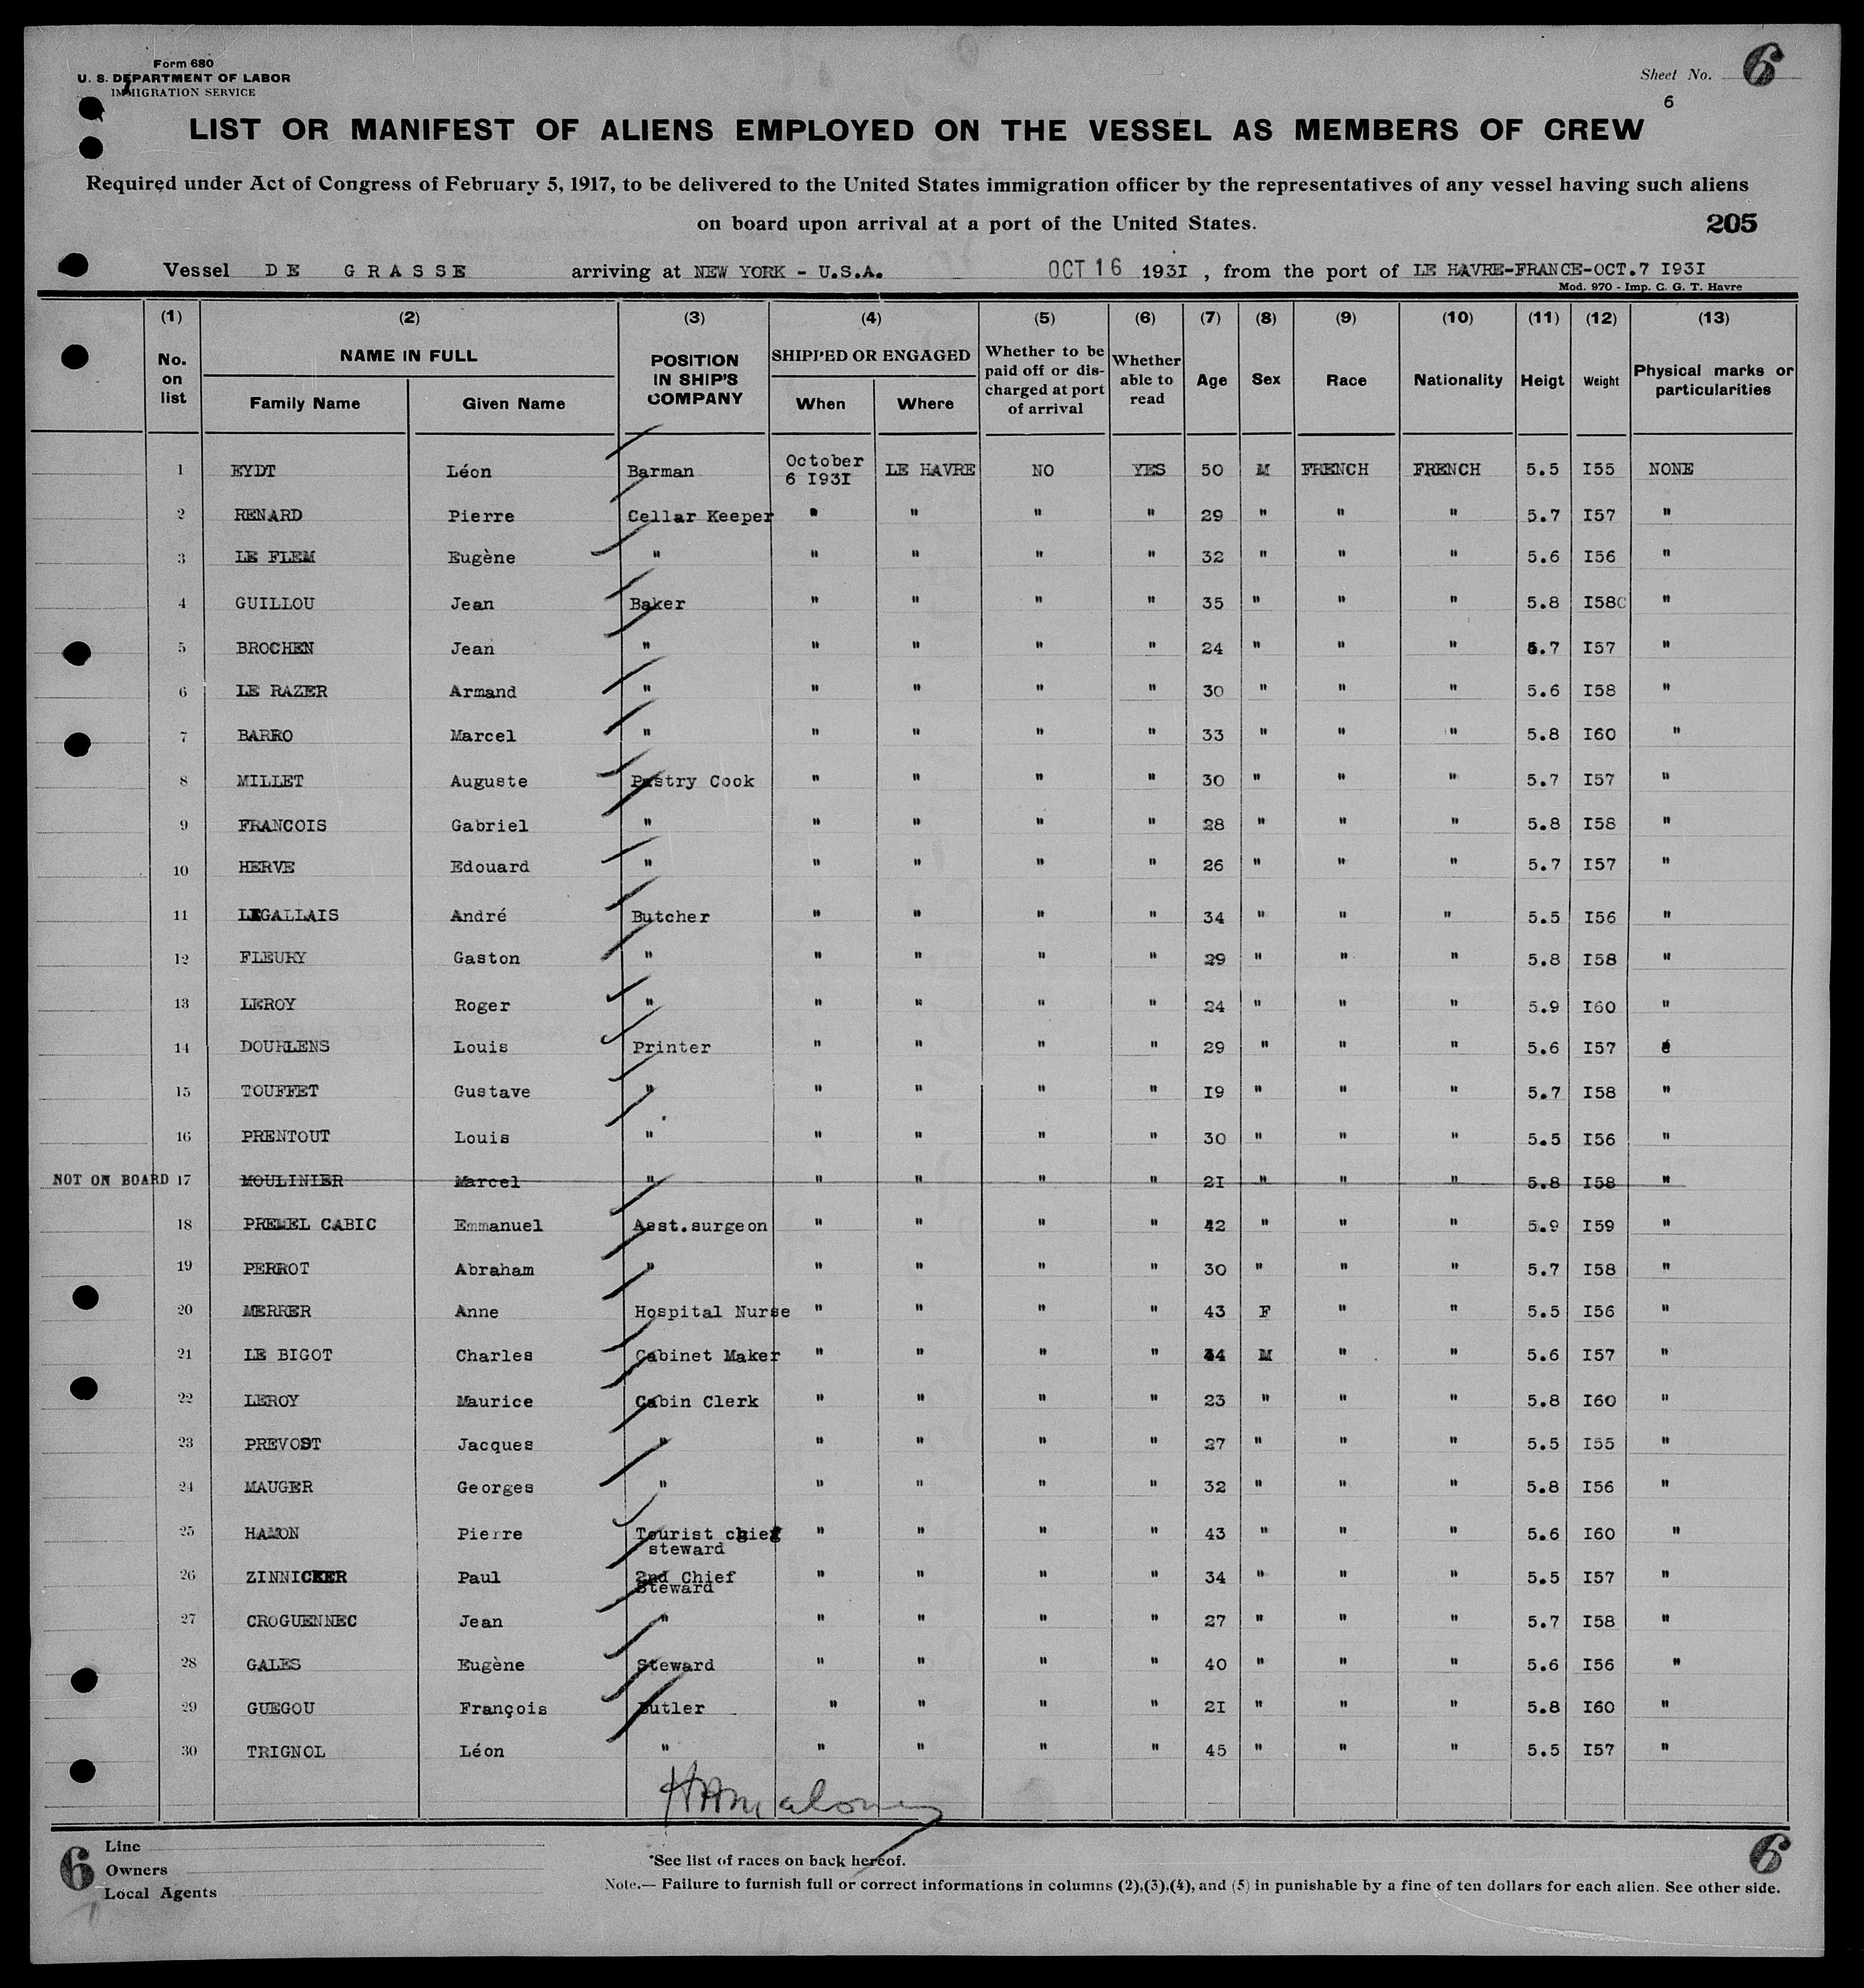 Form 680
U. S. DEPARTMENT OF LABOR
IMMIGRATION SERVICE
Sheet No. 6
6
LIST OR MANIFEST OF ALIENS EMPLOYED ON THE VESSEL AS MEMBERS OF CREW
Required under Act of Congress of February 5, 1917, to be delivered to the United States immigration officer by the representatives of any vessel having such aliens
on board upon arrival at a port of the United States.
205
Vessel DE GRASSE arriving at NEW YORK - U.S.A. OCT 16 193I , from the port of LE HAVRE-FRANCE-OCT.7 I93I
Mod. 970 - Imp. C. G. T. Havre
(1) (2) (3) (4) (5) (6) (7) (8) (9) (10) (11) (12) (13)
No. on list NAME IN FULL Family Name Given Name POSITION IN SHIP'S COMPANY SHIPPED OR ENGAGED When Where Whether to be paid off or discharged at port of arrival Whether able to read Age Sex Race Nationality Heigt Weight Physical marks or particularities
1 EYDT Léon Barman October 6 I93I LE HAVRE NO YES 50 M FRENCH FRENCH 5.5 I55 NONE
2 RENARD Pierre Cellar Keeper " " " " 29 " " " 5.7 I57 "
3 LE FLEM Eugène " " " " " 32 " " " 5.6 I56 "
4 GUILLOU Jean Baker " " " " 35 " " " 5.8 I58C "
5 BROCHEN Jean " " " " " 24 " " " 5.7 I57 "
6 LE RAZER Armand " " " " " 30 " " " 5.6 I58 "
7 BARRO Marcel " " " " " 33 " " " 5.8 I60 "
8 MILLET Auguste Pastry Cook " " " " 30 " " " 5.7 I57 "
9 FRANCOIS Gabriel " " " " " 28 " " " 5.8 I58 "
10 HERVE Edouard " " " " " 26 " " " 5.7 I57 "
11 LEGALLAIS André Butcher " " " " 34 " " " 5.5 I56 "
12 FLEURY Gaston " " " " " 29 " " " 5.8 I58 "
13 LEROY Roger " " " " " 24 " " " 5.9 I60 "
14 DOURLENS Louis Printer " " " " 29 " " " 5.6 I57
15 TOUFFET Gustave " " " " " I9 " " " 5.7 I58 "
16 PRENTOUT Louis " " " " " 30 " " " 5.5 I56 "
NOT ON BOARD 17 MOULINIER Marcel " " " " " 2I " " " 5.8 I58 "
18 PREMEL CABIC Emmanuel Asst.surgeon " " " " 42 " " " 5.9 I59 "
19 PERROT Abraham " " " " " 30 " " " 5.7 I58 "
20 MERRER Anne Hospital Nurse " " " " 43 F " " 5.5 I56 "
21 LE BIGOT Charles Cabinet Maker " " " " 34 M " " 5.6 I57 "
22 LEROY Maurice Cabin Clerk " " " " 23 " " " 5.8 I60 "
23 PREVOST Jacques " " " " " 27 " " " 5.5 I55 "
24 MAUGER Georges " " " " " 32 " " " 5.8 I56 "
25 HAMON Pierre Tourist chief steward " " " " 43 " " " 5.6 I60 "
26 ZINNICKER Paul 2nd Chief Steward " " " " 34 " " " 5.5 I57 "
27 CROGUENNEC Jean " " " " " 27 " " " 5.7 I58 "
28 GALES Eugène Steward " " " " 40 " " " 5.6 I56 "
29 GUEGOU François Butler " " " " 2I " " " 5.8 I60 "
30 TRIGNOL Léon " " " " " 45 " " " 5.5 I57 "
6 Line
Owners
Local Agents
*See list of races on back hereof.
Note.— Failure to furnish full or correct informations in columns (2),(3),(4), and (5) in punishable by a fine of ten dollars for each alien. See other side.
6